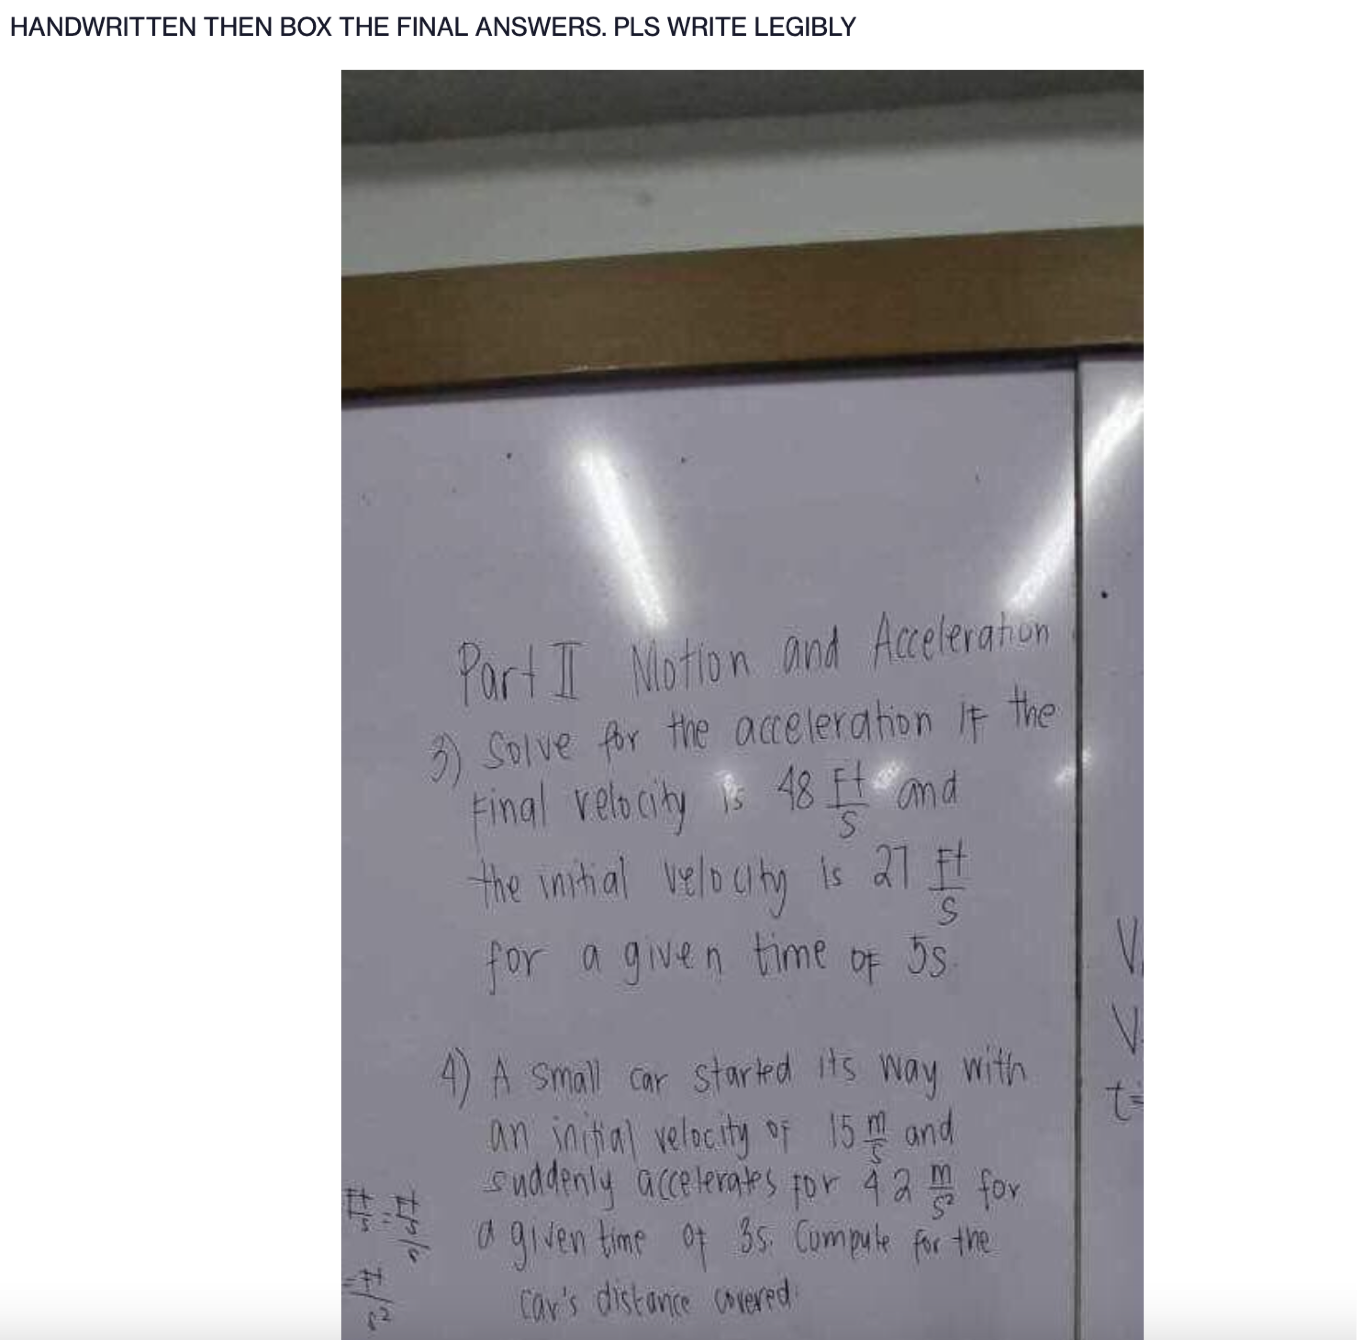 HANDWRITTEN THEN BOX THE FINAL ANSWERS. PLS WRITE LEGIBLY
Part II Motion and Acceleration
3) Solve for the acceleration if the
Final velocity is 48 Ft/s and
the initial velocity is 27 Ft/s
for a given time of 5s.
4) A small car started its way with
an initial velocity of 15 m/s and
suddenly accelerates for 42 m/s² for
a given time of 3s. Compute for the
car's distance covered.
Ft/s = Ft/s/s
= Ft/s²
V
V
t=